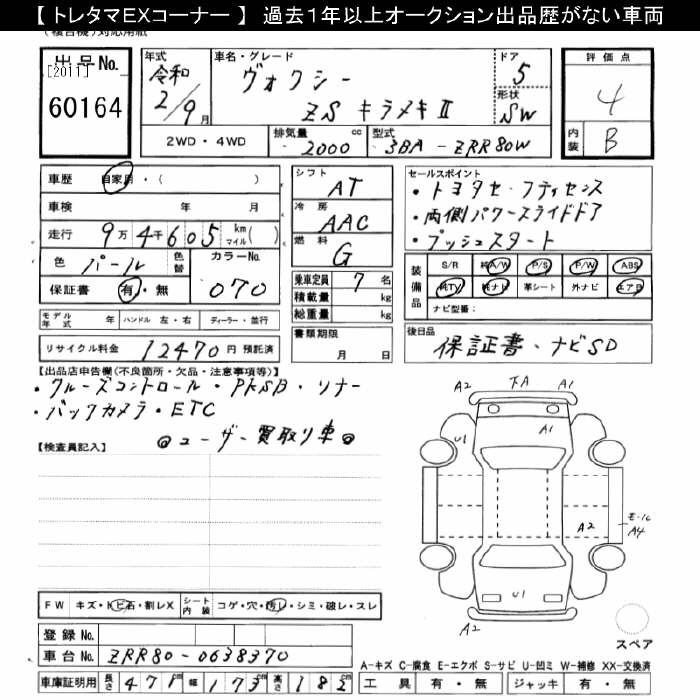 【 トレタマEXコーナー 】 過去１年以上オークション出品歴がない車両
出品No.
[2011]
60164
年式
令和
2/9月
車名・グレード
ヴォクシー
ZS キラメキⅡ
ドア
5
形状
SW
評価点
4
内装
B
2WD ・ 4WD
排気量
2000 cc
型式
3BA - ZRR80W
車歴 自家用 ・ ( )
車検 年 月
走行 9万 4千 605 km マイル ( )
色 パール 色替
カラーNo.
070
保証書 有・無
モデル年式 年 ハンドル 左・右 ディーラー・並行
リサイクル料金 12470 円 預託済
シフト
AT
冷房
AAC
燃料
G
乗車定員 7 名
積載量 kg
総重量 kg
書類期限
月 日
セールスポイント
・トヨタセーフティセンス
・両側パワースライドドア
・プッシュスタート
装備品
S/R 純A/W P/S P/W ABS
純TV 純ナビ 革シート 外ナビ エアB
ナビ型番：
後日品
保証書・ナビSD
【出品店申告欄(不良箇所・欠品・注意事項等)】
・クルーズコントロール・PKSB・ソナー
・バックカメラ・ETC
◎ユーザー買取り車◎
【検査員記入】
A2 下A A1
U1 A1
A2
E-1C
A4
U1
A2
スペア
FW キズ・トビ石・割レX
シート内装 コゲ・穴・汚レ・シミ・破レ・スレ
登録 No.
車台 No. ZRR80-0638370
A－キズ C－腐食 E－エクボ S－サビ U－凹ミ W－補修 XX－交換済
車庫証明用 長さ 471cm 幅 173cm 高さ 182
工具 有・無 ジャッキ 有・無